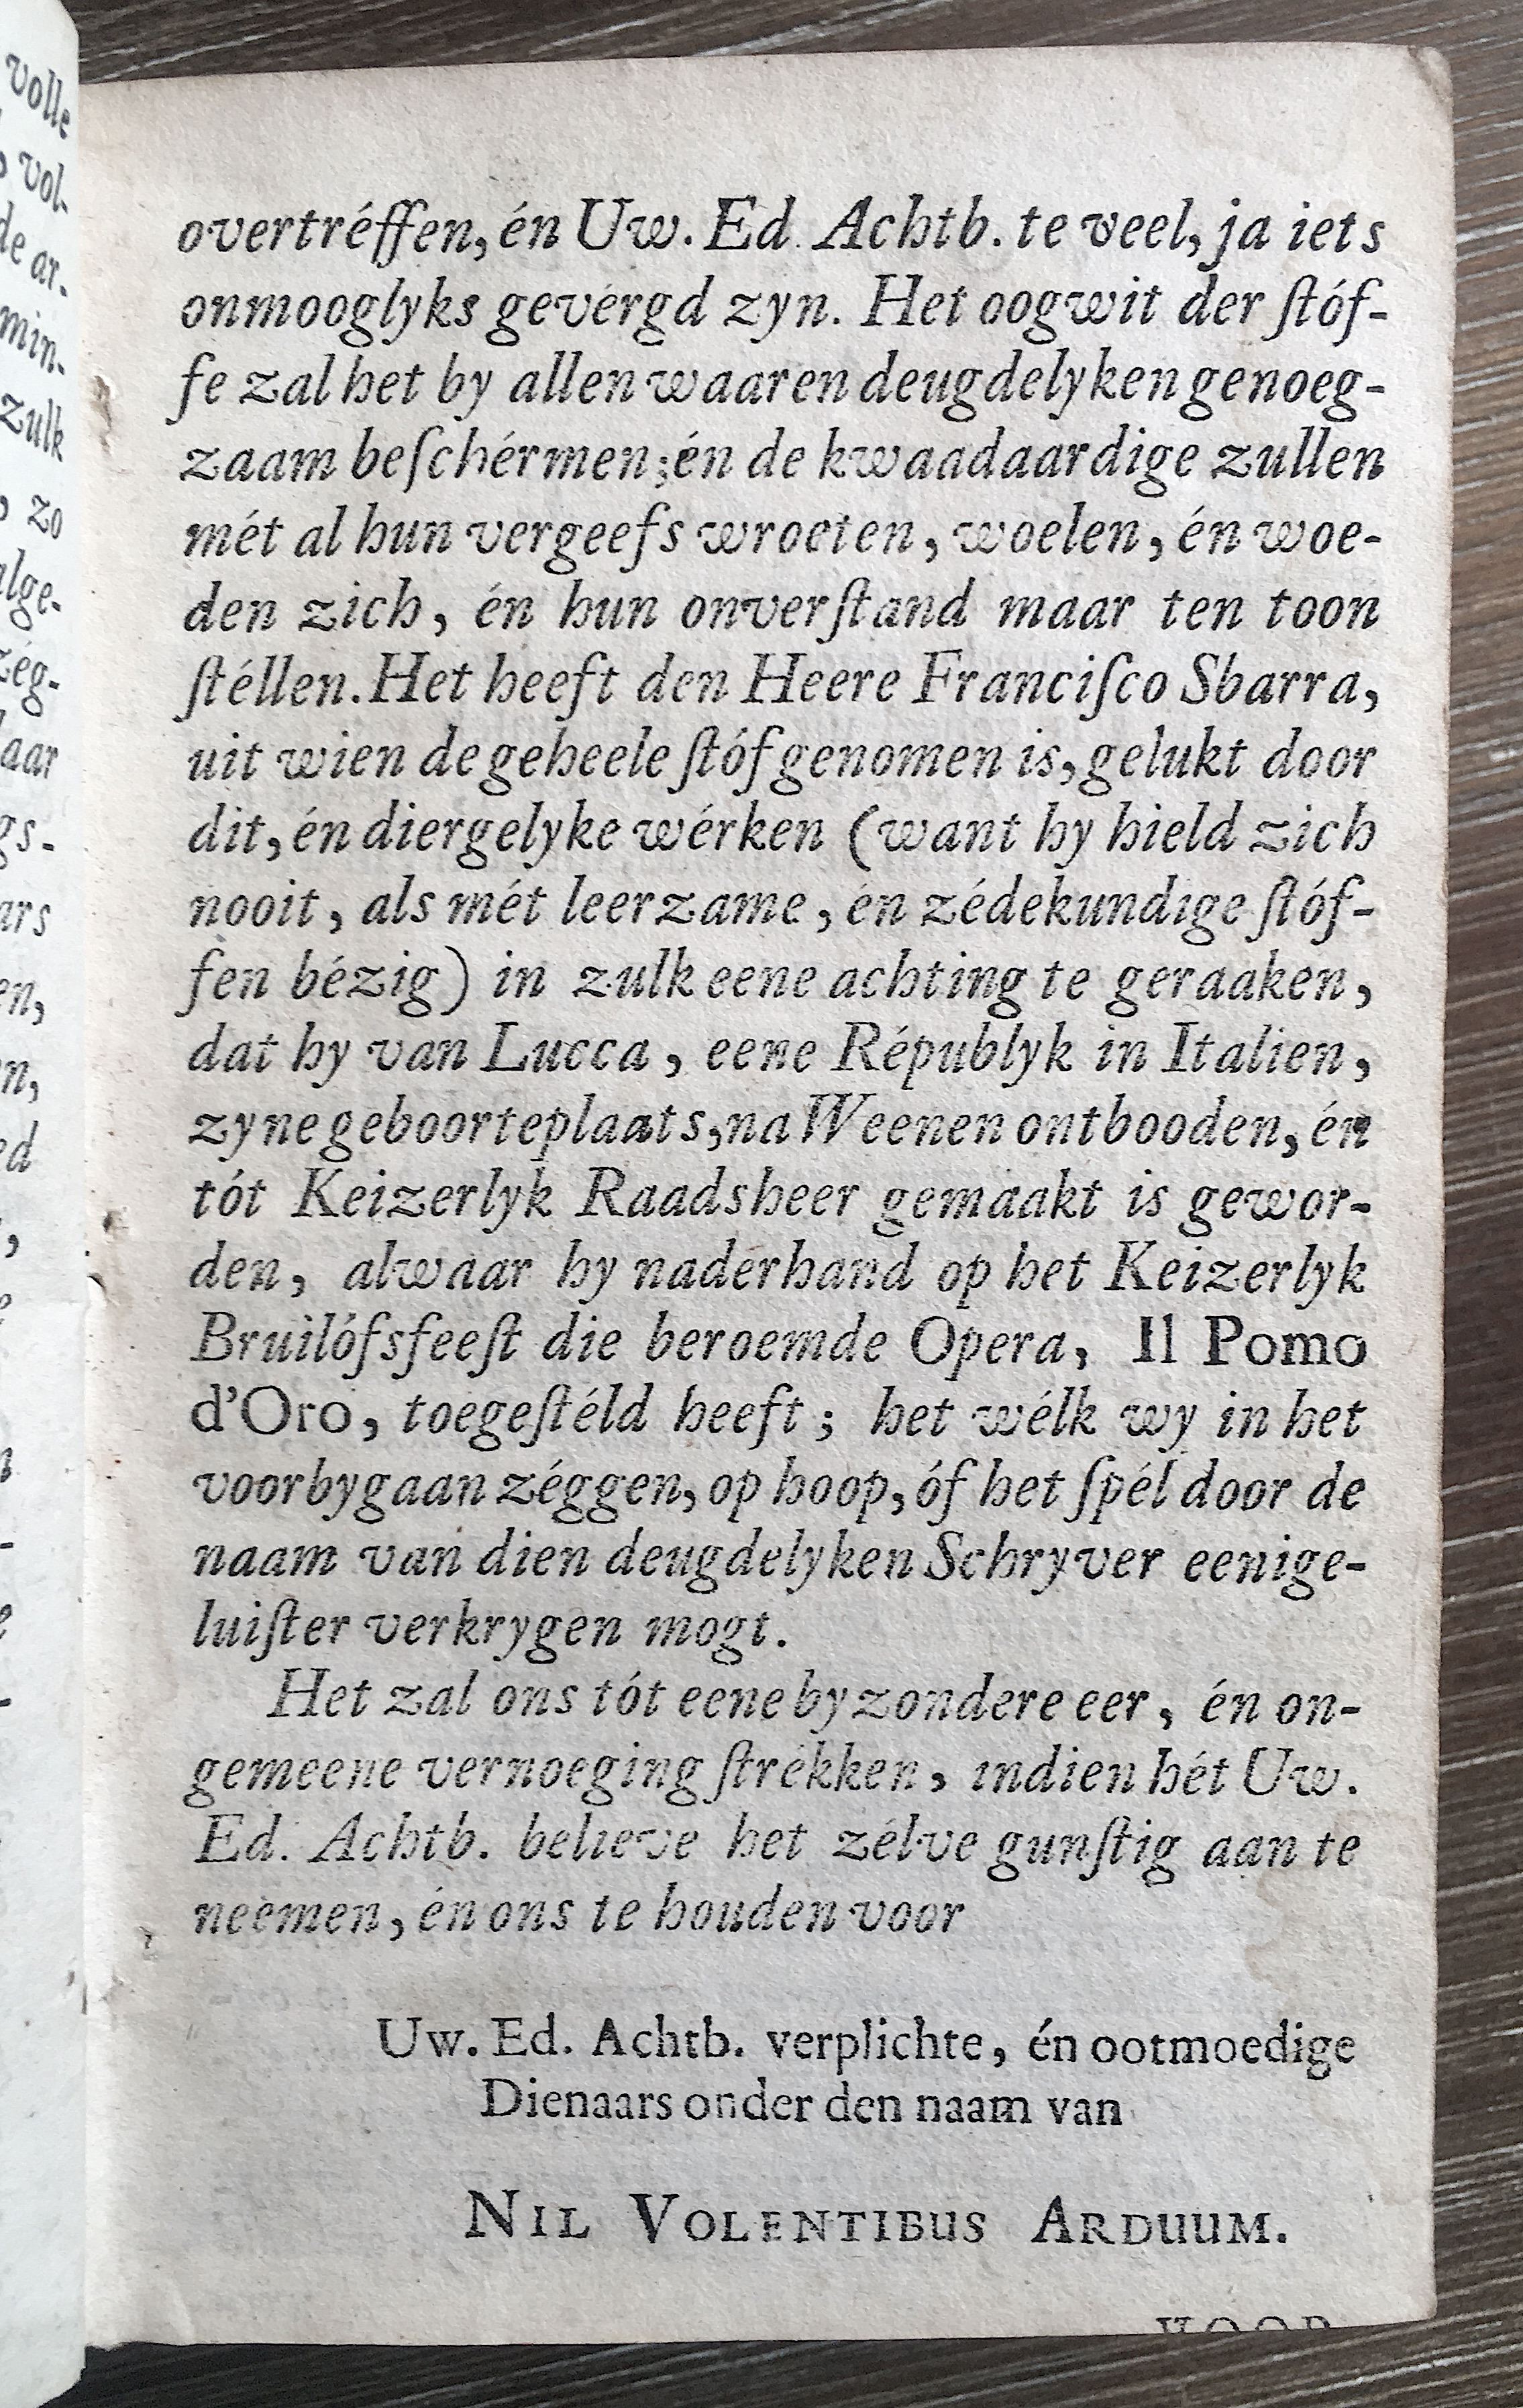 volle
vol-
de ar-
min-
zulk
, zo
alge-
zég-
daar
gs-
ars
en,
en,
ed
overtréffen, én Uw. Ed. Achtb. te veel, ja iets
onmooglyks gevérgd zyn. Het oogwit der ſtóf-
fe zal het by allen waaren deugdelyken genoeg-
zaam beſchérmen; én de kwaadaardige zullen
mét al hun vergeefs wroeten, woelen, én woe-
den zich, én hun onverſtand maar ten toon
ſtéllen. Het heeft den Heere Franciſco Sbarra,
uit wien de geheele ſtóf genomen is, gelukt door
dit, én diergelyke wérken (want hy hield zich
nooit, als mét leerzame, én zédekundige ſtóf-
fen bézig) in zulk eene achting te geraaken,
dat hy van Lucca, eene Républyk in Italien,
zyne geboorteplaats, na Weenen ontbooden, én
tót Keizerlyk Raadsheer gemaakt is gewor-
den, alwaar hy naderhand op het Keizerlyk
Bruilófsfeeſt die beroemde Opera, Il Pomo
d'Oro, toegeſtéld heeft; het wélk wy in het
voorbygaan zéggen, op hoop, óf het ſpél door de
naam van dien deugdelyken Schryver eenige-
luiſter verkrygen mogt.
Het zal ons tót eene byzondere eer, én on-
gemeene vernoeging ſtrékken, indien hét Uw.
Ed. Achtb. believe het zélve gunſtig aan te
neemen, én ons te houden voor
Uw. Ed. Achtb. verplichte, én ootmoedige
Dienaars onder den naam van
NIL VOLENTIBUS ARDUUM.
VOOR